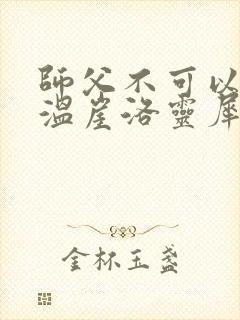 師父不可以
溫崖洛靈犀
金杯玉盞